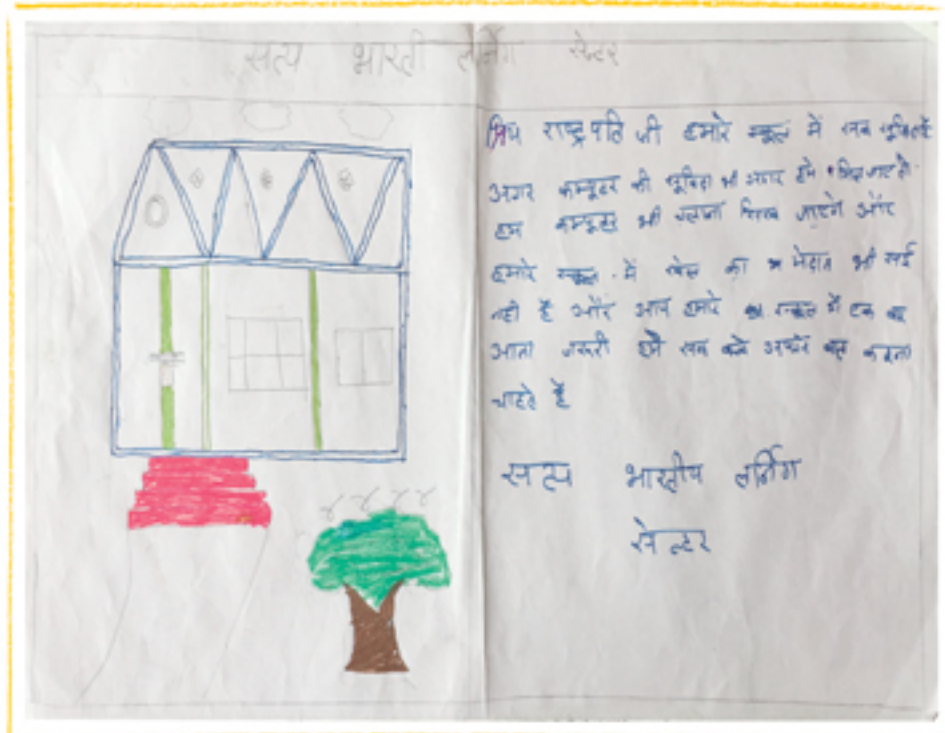 सत्य भारती लर्निंग सेन्टर
प्रिय राष्ट्रपति जी हमारे स्कूल में सब
अगर कम्प्यूटर की सुविधा भी अगर हमे
हम कम्प्यूटर भी चलाना सिख जाएगे और
हमारे स्कूल में खेल का मेदान भी
नही है और आप हमारे स्कूल में एक
आना जरुरी हमे सब
चाहते है
सत्य भारतीय लर्निग
सेन्टर